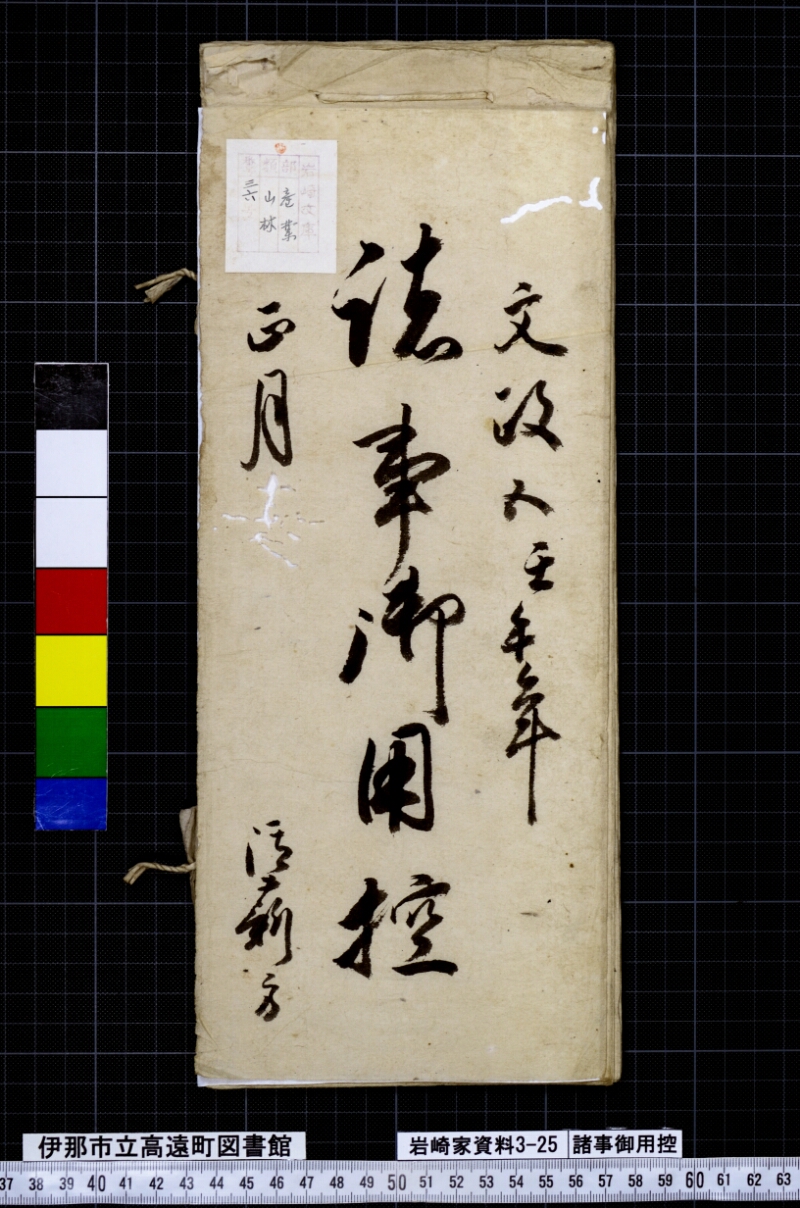 文政五壬午年
諸事御用控
正月
岩崎文庫
部 産業
類 山林
号 三六
伊那市立高遠町図書館
岩崎家資料3-25
諸事御用控
37 38 39 40 41 42 43 44 45 46 47 48 49 50 51 52 53 54 55 56 57 58 59 60 61 62 63